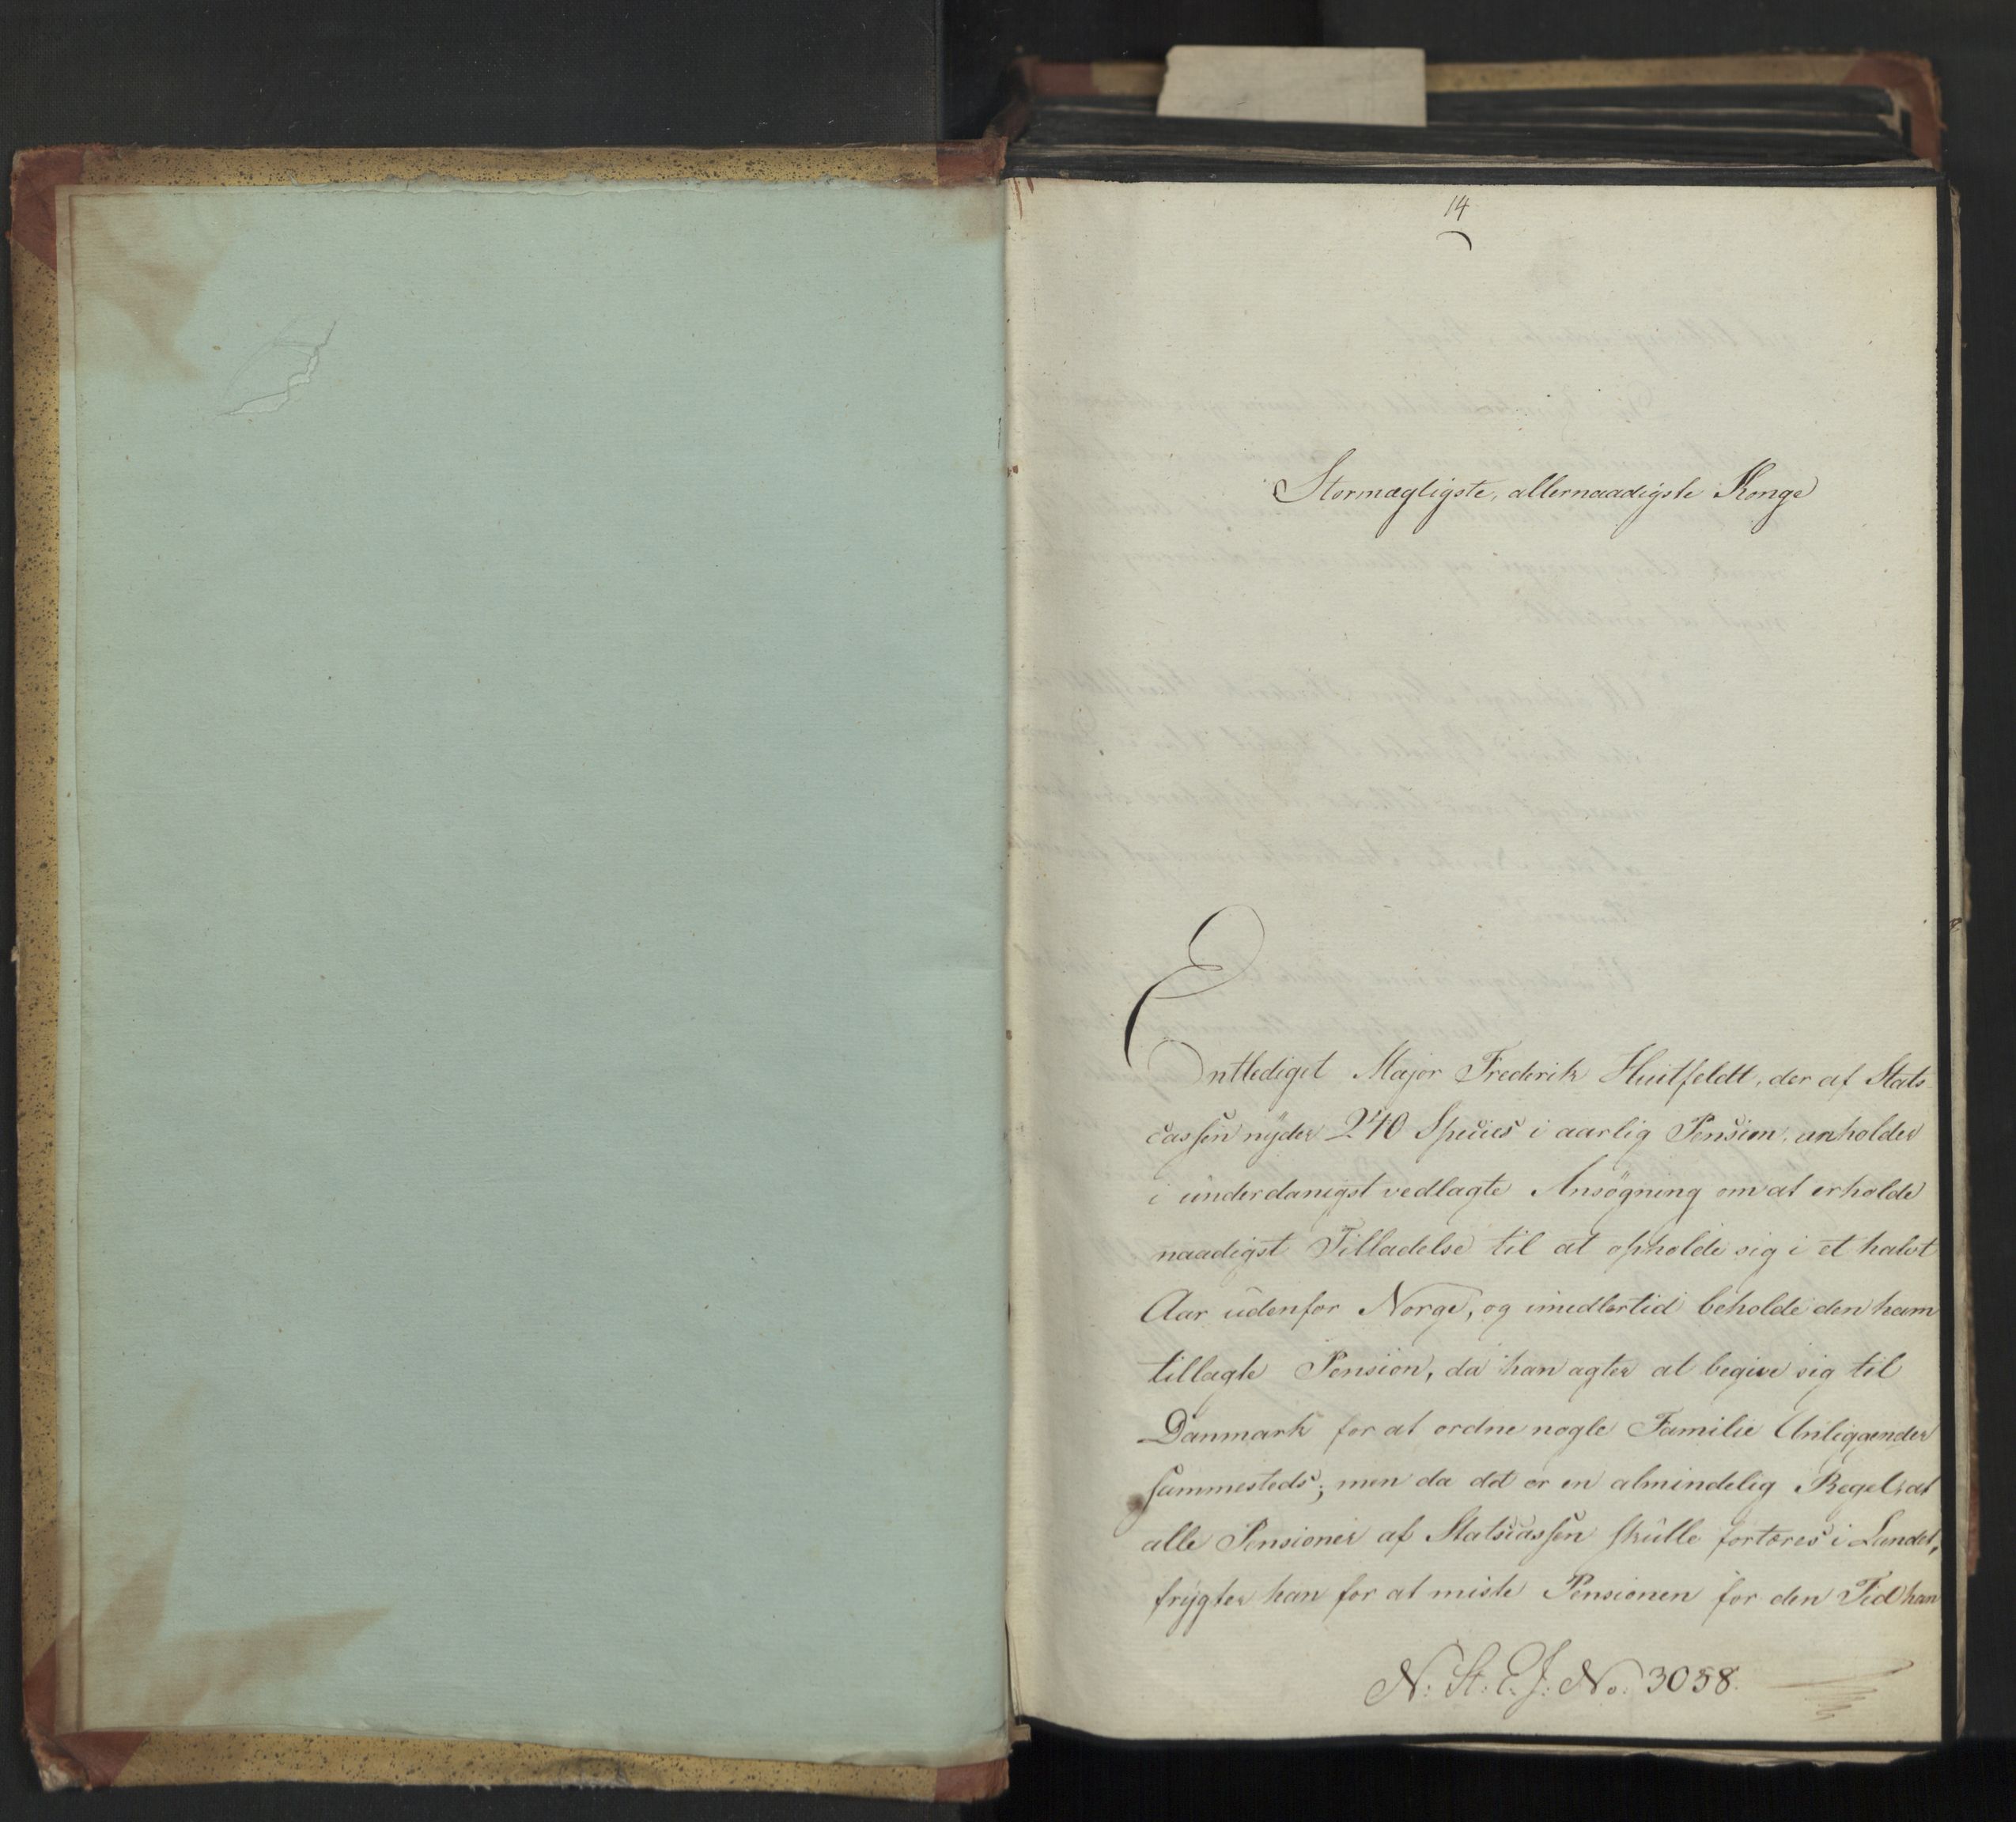 14
Stormægtigste, allernaadigste Konge
Entlediget Major Frederik Huitfeldt, der af Stats
cassen nyder 240 Species i aarlig Pension, anholder
i underdanigst vedlagte Ansøgning om at erholde
naadigst Tilladelse til at opholde sig i et halvt
Aar udenfor Norge, og imidlertid beholde den ham
tillagte Pension, da han agter at begive sig til
Danmark for at ordne nogle Familie Anliggender
sammesteds; men da det er en almindelig Regel, at
alle Pensioner af Statscassen skulle fortæres i Landet,
frygter han for at miste Pensionen for den Tid han
N: St: E. J: No. 3058.